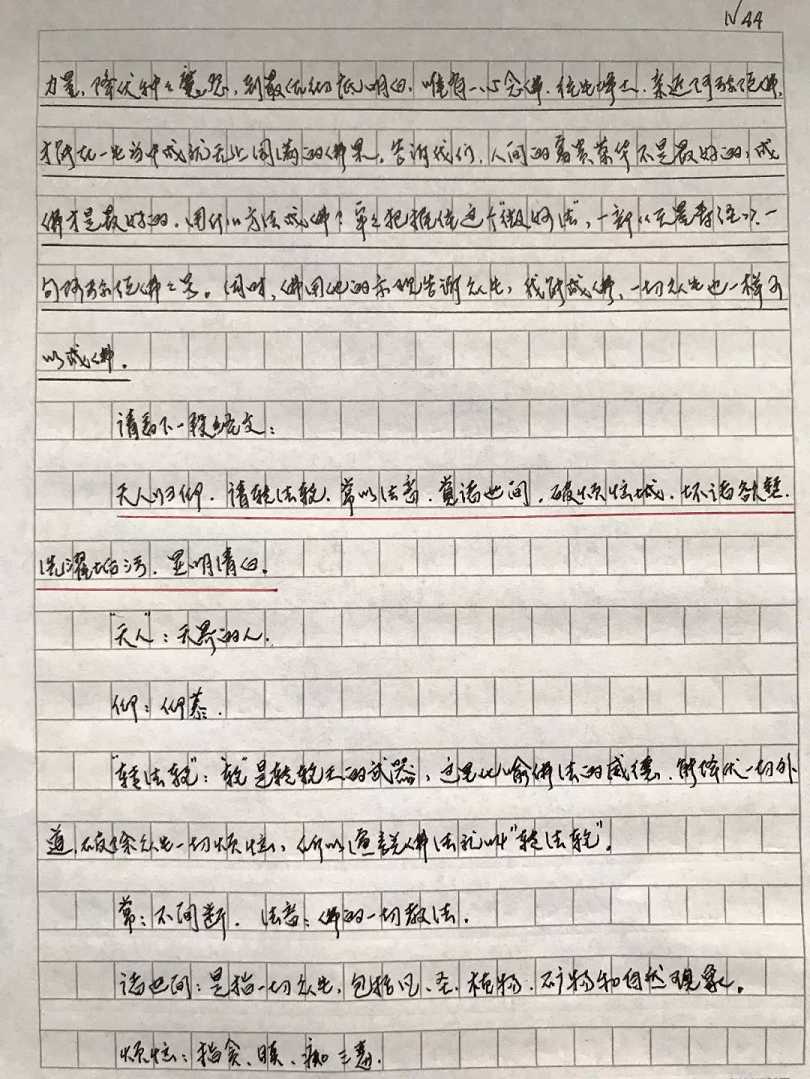 N44
力量,降伏种种魔怨,到最后彻底明白,唯有一心念佛,往生净土,亲近阿弥陀佛,
才能在一生当中成就无上圆满的佛果。告诉我们,人间的富贵荣华不是最好的,成
佛才是最好的,用什么方法成佛?牢牢把握住这个“微妙法”,一部《无量寿经》,一
句阿弥陀佛名号。同时,佛用他的示现告诉众生,我能成佛,一切众生也一样可
以成佛。
请看下一段经文:
天人归仰,请转法轮,常以法音,觉诸世间,破烦恼城,坏诸欲堑,
洗濯垢污,显明清白。
“天人”:天界的人。
仰:仰慕。
“转法轮”:“轮”是转轮王的武器,这里比喻佛法的威德,能降伏一切外
道,破除众生一切烦恼,所以演说佛法就叫“转法轮”。
常:不间断。法音:佛的一切教法。
诸世间:是指一切众生,包括凡、圣、植物、矿物和自然现象。
烦恼:指贪、瞋、痴三毒。